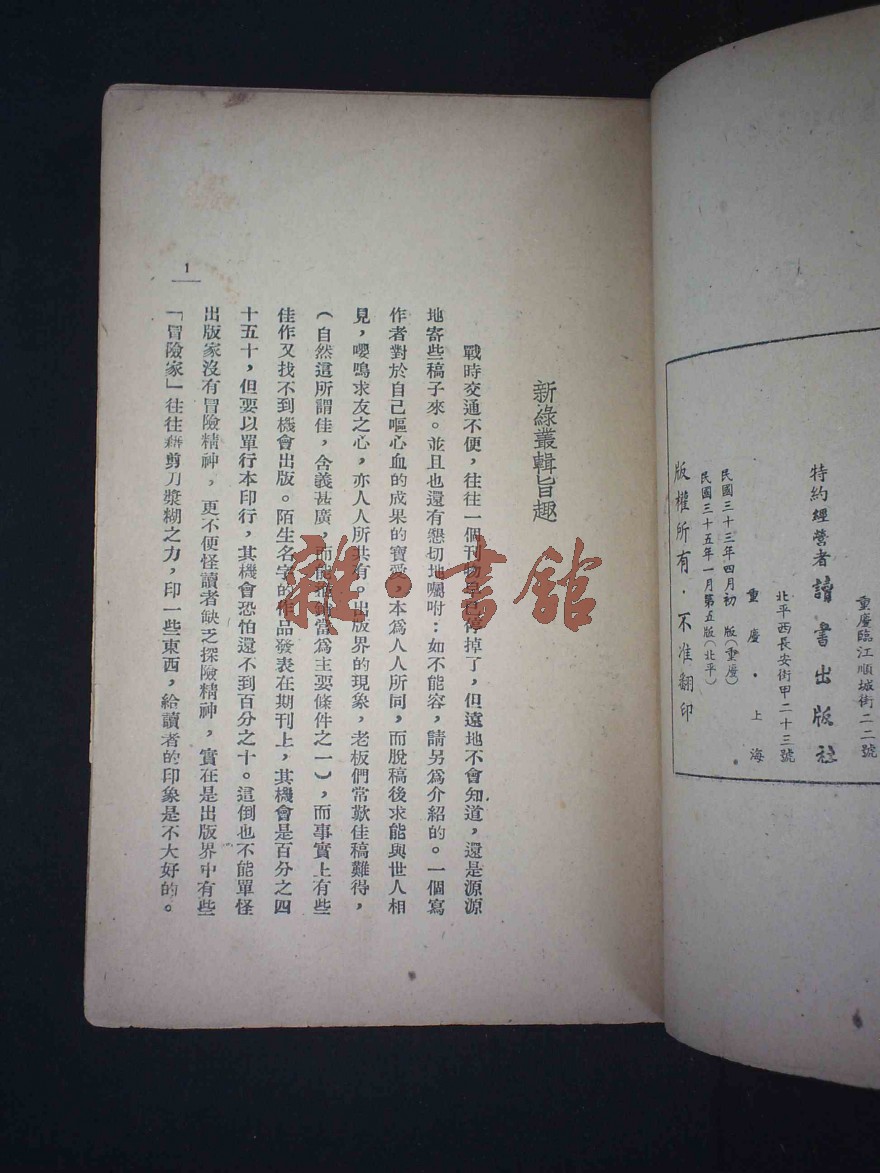 重慶臨江順城街二二號
特約經營者讀書出版社
北平西長安街甲二十三號
重慶·上海
民國三十三年四月初版(重慶)
民國三十五年一月第五版(北平)
版權所有·不准翻印
新綠叢輯旨趣
戰時交通不便,往往一個刊物早已停掉了,但遠地不會知道,還是源源
地寄些稿子來。並且也還有懇切地囑咐:如不能容,請另爲介紹的。一個寫
作者對於自己嘔心血的成果的寶愛,本爲人人所同,而脫稿後求能與世人相
見,嚶鳴求友之心,亦人人所共有。出版界的現象,老板們常歎佳稿難得,
(自然這所謂佳,含義甚廣,而能 當爲主要條件之一),而事實上有些
佳作又找不到機會出版。陌生名字的作品發表在期刊上,其機會是百分之四
十五十,但要以單行本印行,其機會恐怕還不到百分之十。這倒也不能單怪
出版家沒有冒險精神,更不便怪讀者缺乏探險精神,實在是出版界中有些
「冒險家」往往藉剪刀漿糊之力,印一些東西,給讀者的印象是不大好的。
1
雜·書館